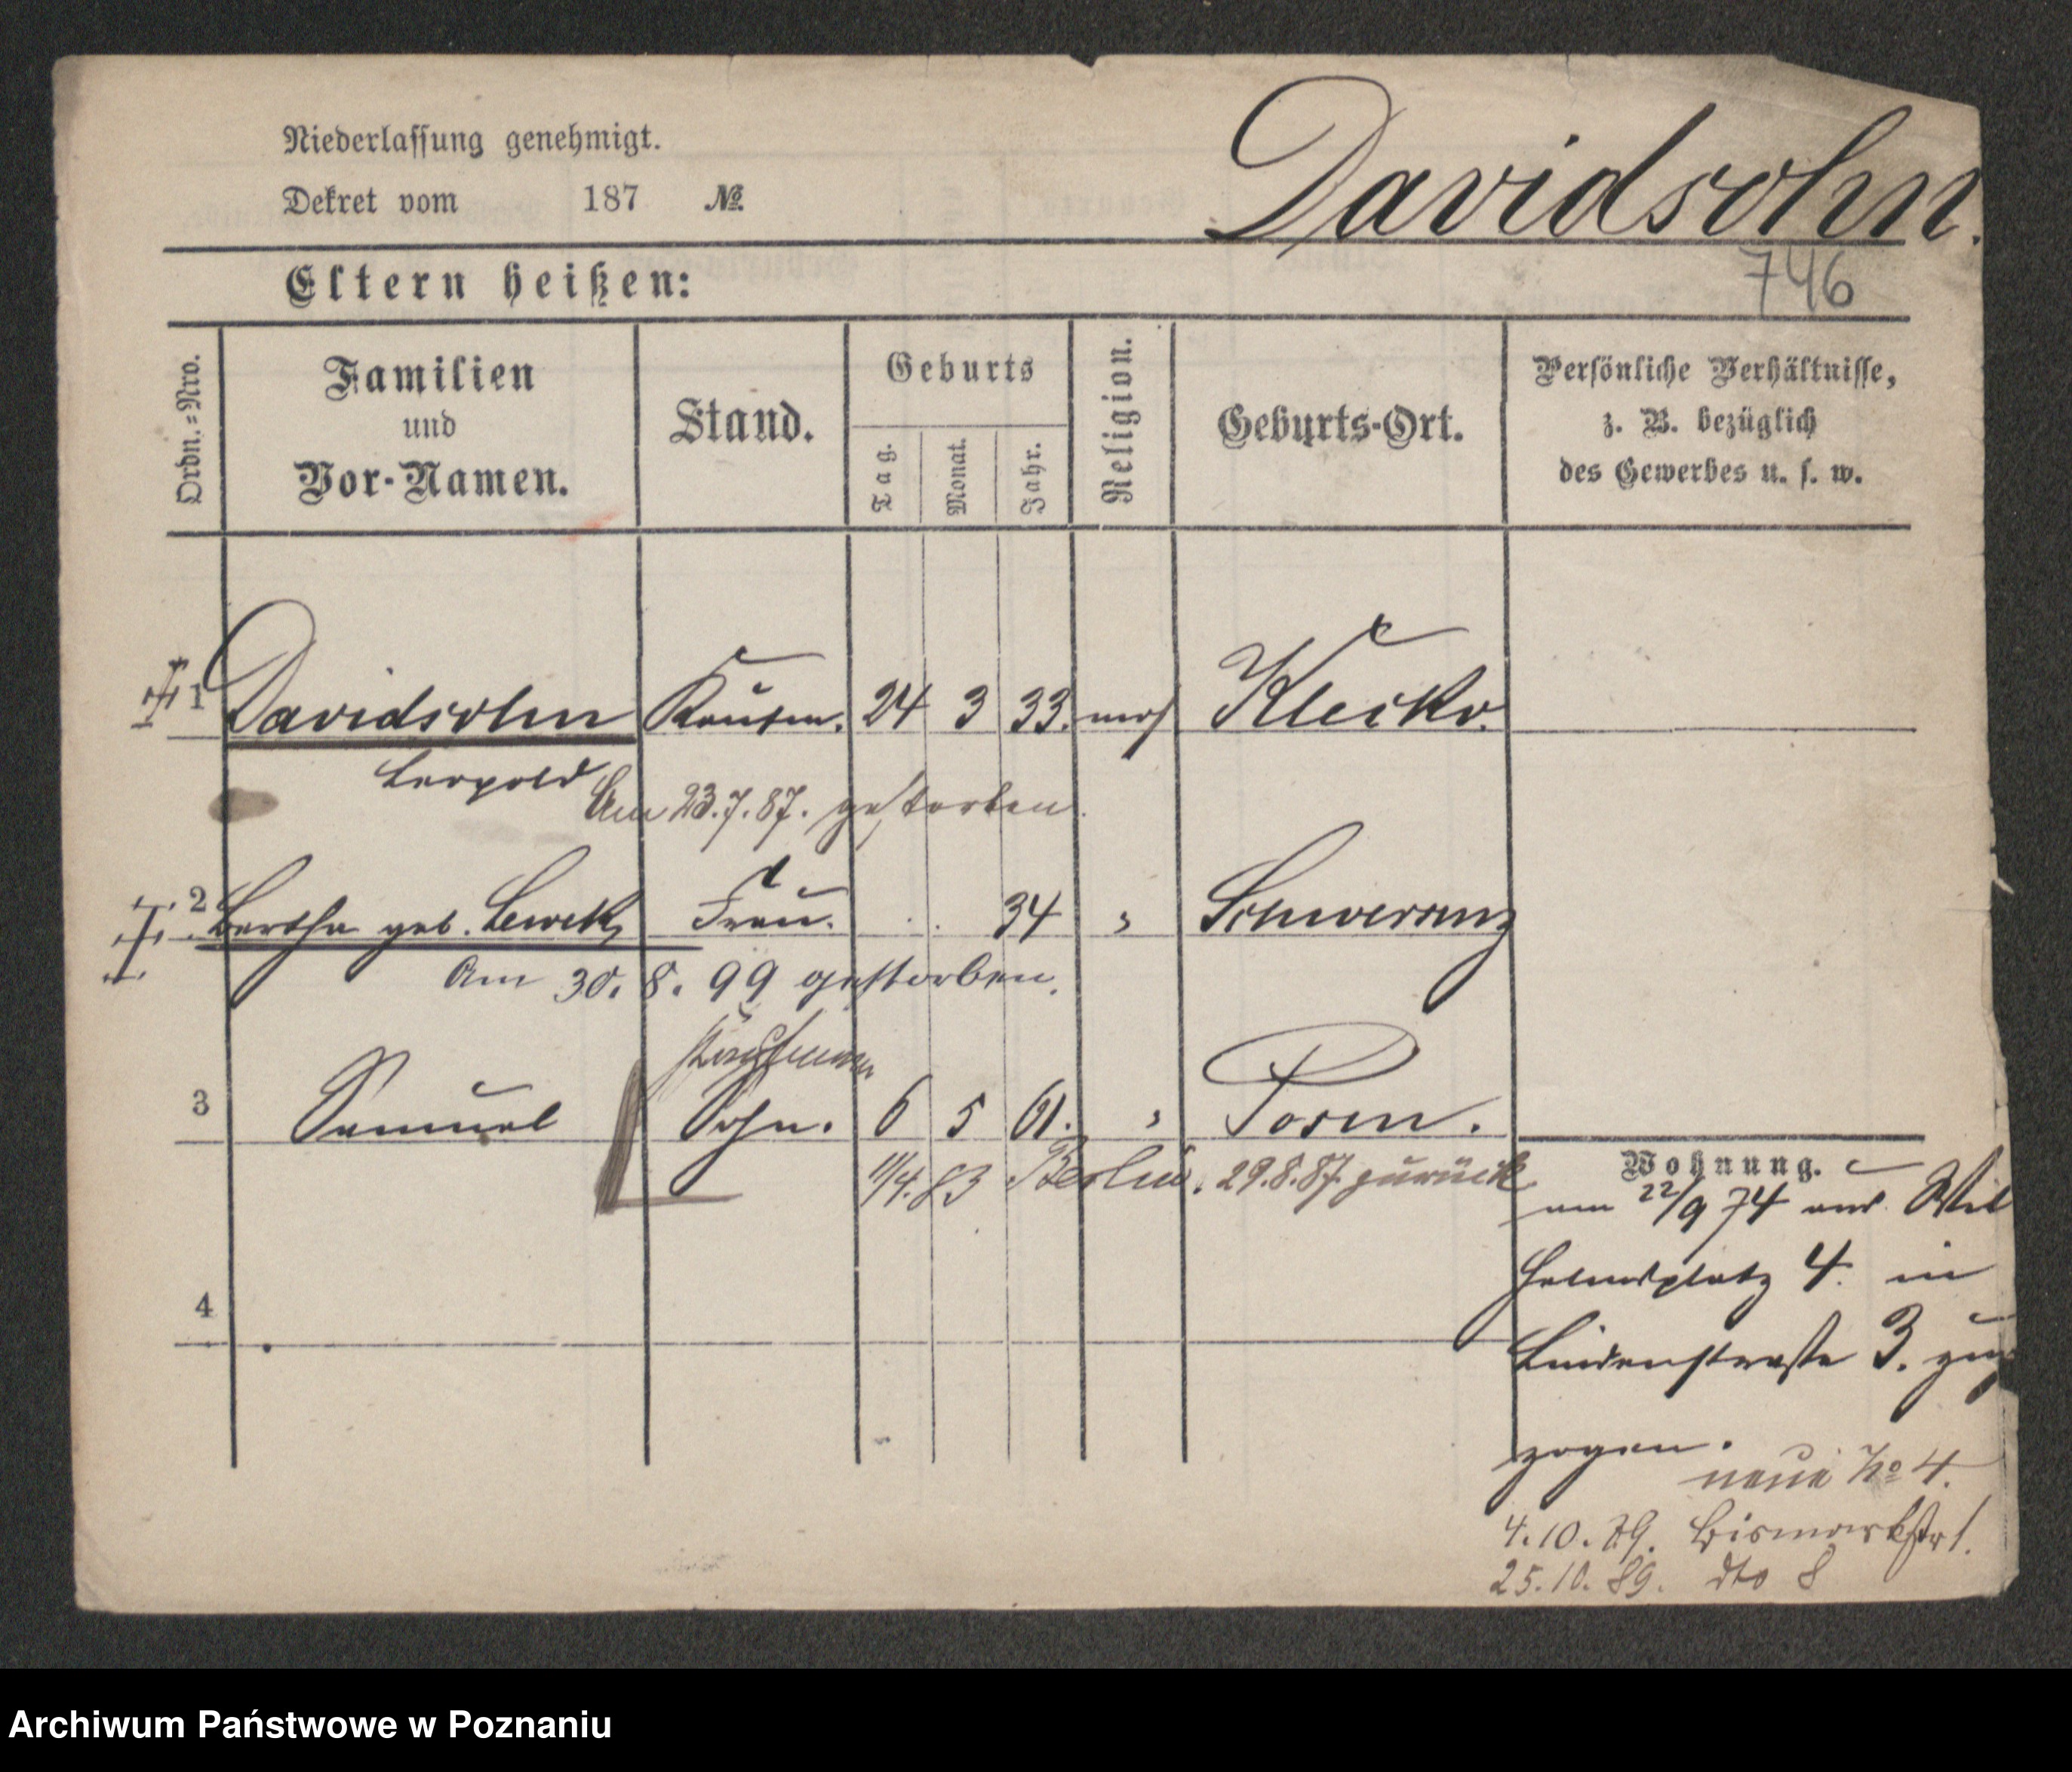 Davidsohn.
Niederlassung genehmigt.
Dekret vom 187 №
746
Eltern heißen:
Ordn.=Nro.
Familien
und
Vor-Namen.
Stand.
Geburts
Tag.
Monat.
Jahr.
Religion.
Geburts-Ort.
Persönliche Verhältnisse,
z. B. bezüglich
des Gewerbes u. s. w.
1 Davidsohn Kaufm. 24 3 33. mos Klecko.
Leopold
Am 23.7.87. gestorben.
2 Bertha geb. Frau. 34 " Schwersenz
Am 30. 8. 99 gestorben.
Kaufmann
3 Samuel Sohn. 6 5 61. " Posen.
11/4.83 Berlin. 29.8.87. zurück
Wohnung.
am 22/9 74 aus Wil
helmsplatz 4. in
4
Lindenstraße 3. zu
zogen.
neue No 4.
4.10.79. Bismarkstr 1.
25.10.89. dto 8
Archiwum Państwowe w Poznaniu